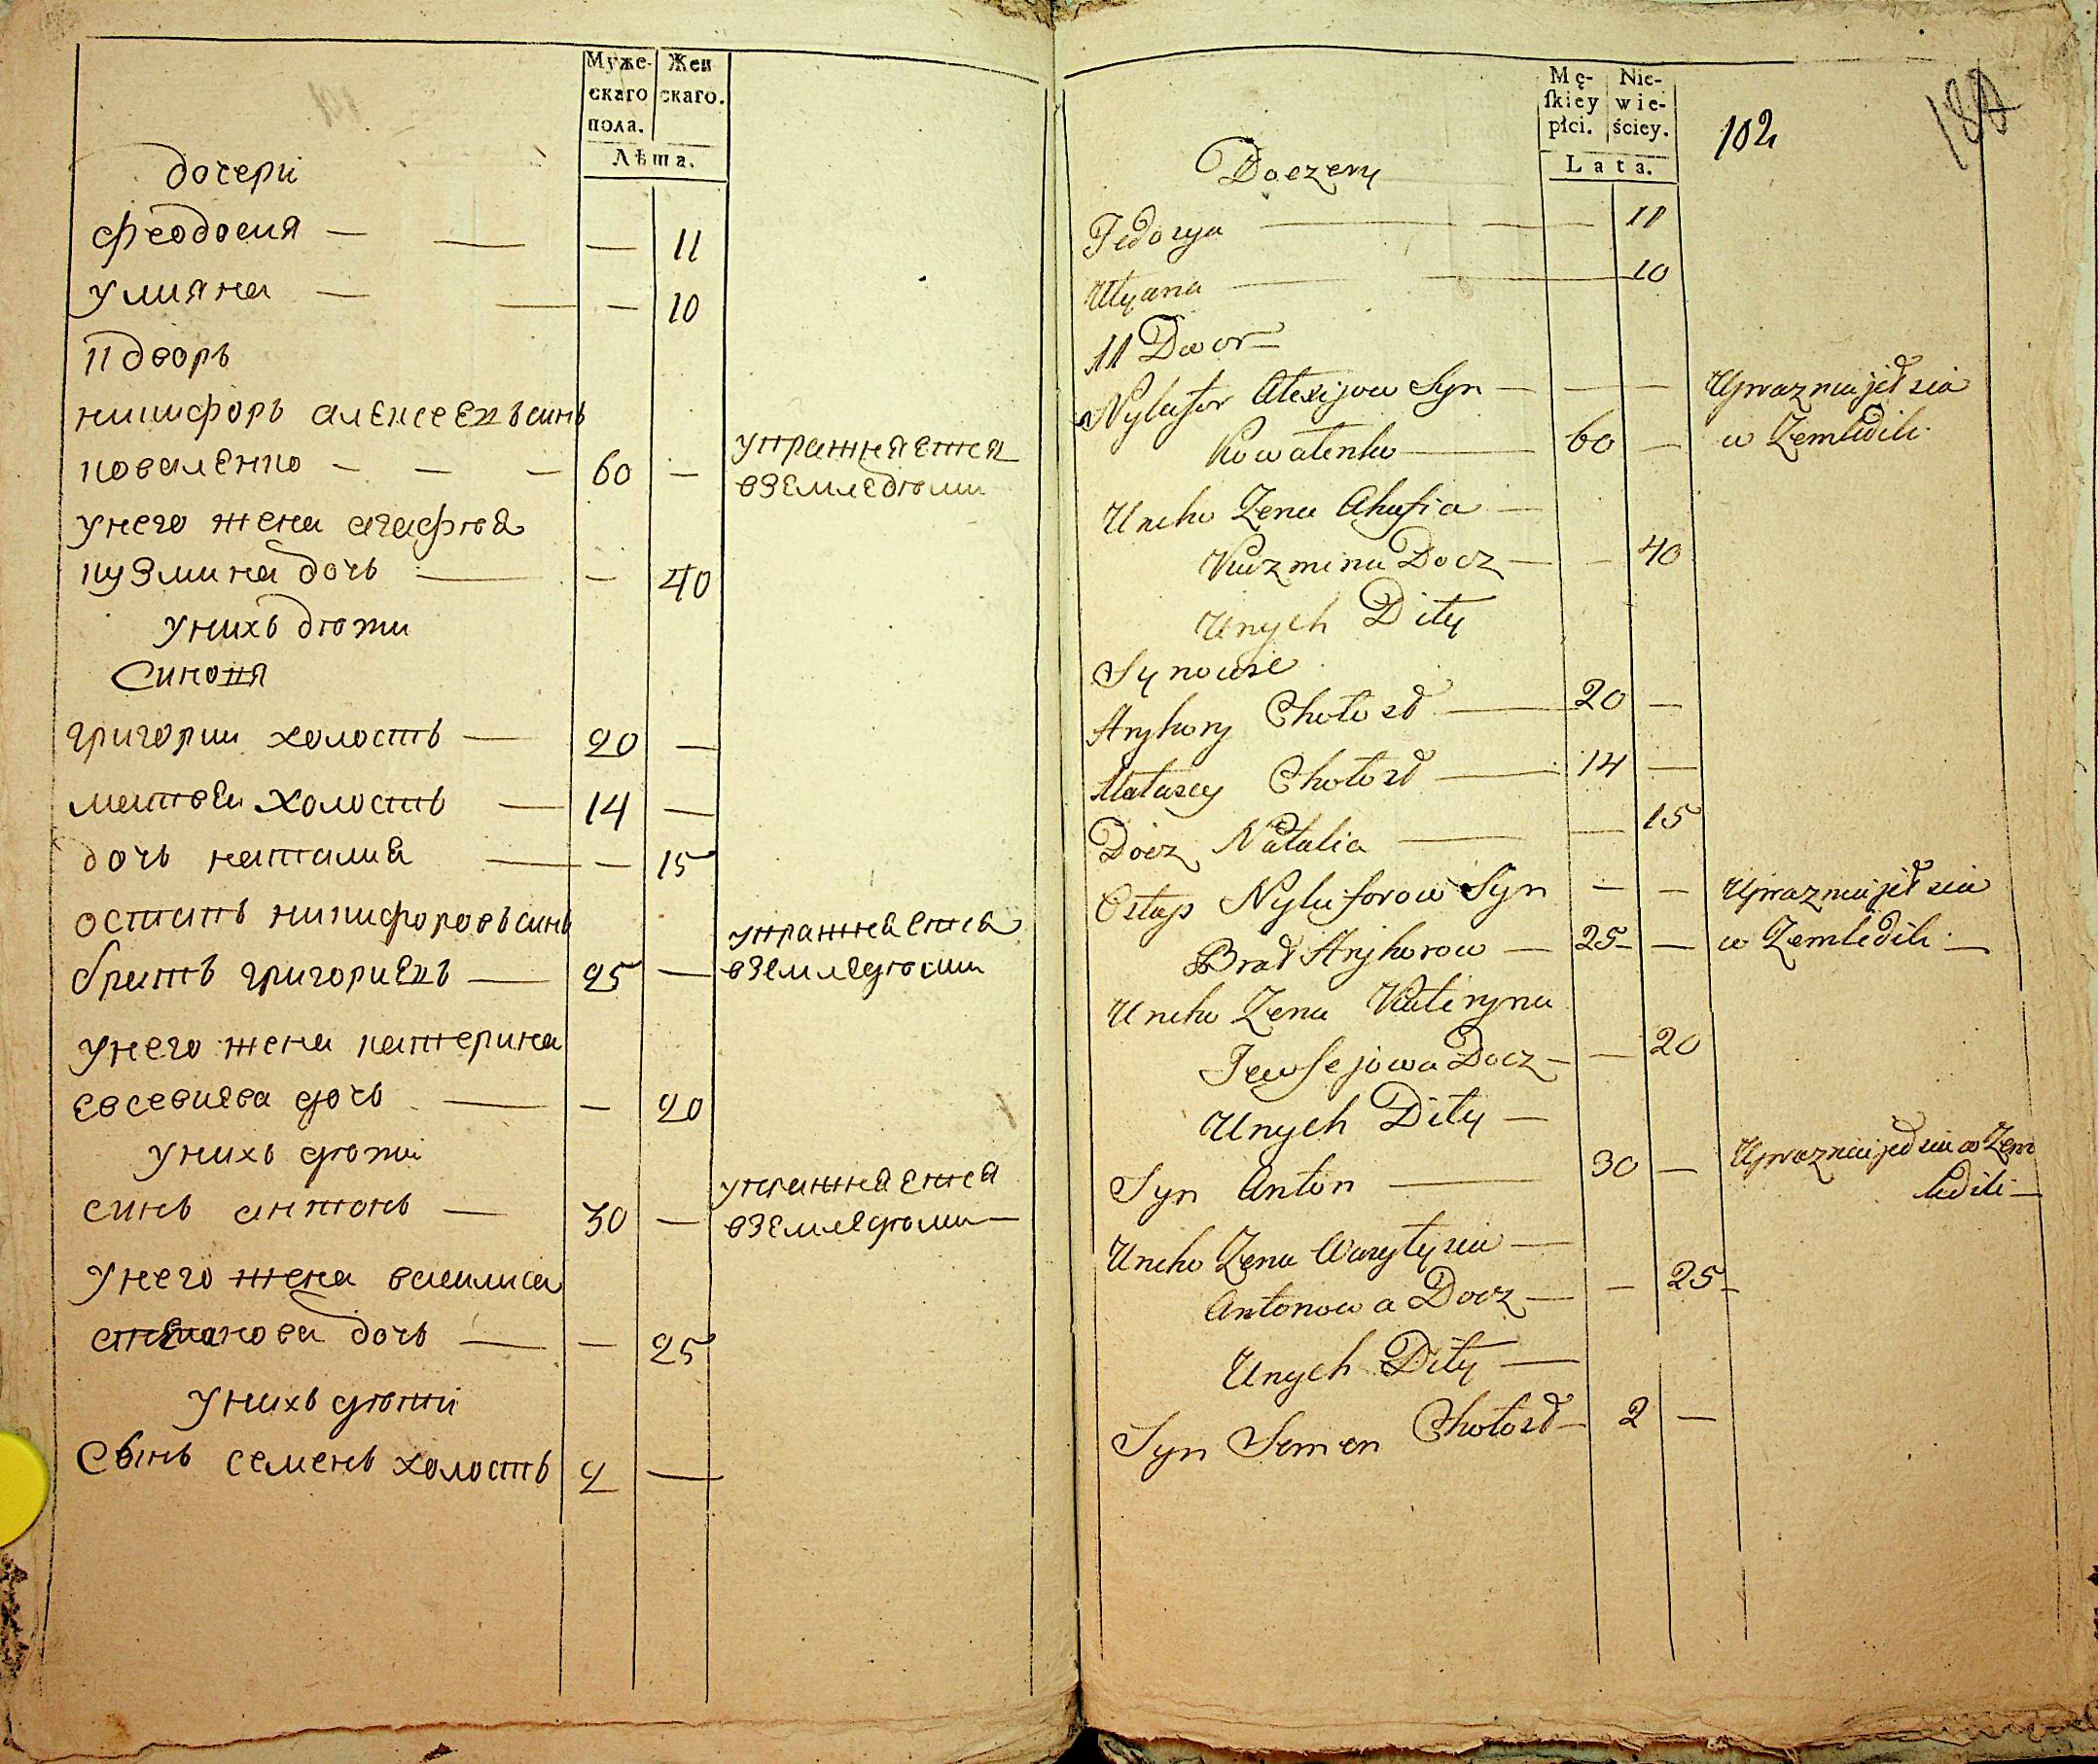 Муже-
скаго
пола.
Жен
скаго.
Лѣта.
дочері
феодосия — — — 11
улияна — — — 10
11 дворъ
никифоръ алексеевъ синъ
коваленко — — — 60 — упражняется
вземледюли
унего жена агафюя
кузмина дочь — — 40
унихъ дюти
Синовя
григории холостъ — 20 —
матвеи холостъ — 14 —
дочь наталия — — 15
остапъ никифоровъ синъ
братъ григориевъ — 25 — упражняется
вземледюлии
унего жена катерина
евсевиева дочь — — 20
унихъ дюти
синъ антонъ — 30 — упражняется
вземледюли —
унего жена василиса
степанова дочь — — 25
унихъ дюти
Сынъ семенъ холостъ 2 —
Mę-
ſkiey
płci.
Nie-
wie-
ściey.
Lata.
102
Doczery
Fedosya — — 11
Ulyana — — 10
11 Dwor —
Nykyfor Alexijow Syn — — — Uprazniajet sia
Kowalenko — 60 — w Zemledili
Uneho Zena Ahafia —
Kuzmina Docz — — 40
Unych Dity
Synowie
Hryhory Chołost — 20 —
Matwey Chołost — 14 —
Docz Natalia — — 15
Ostap Nykiforow Syn — — Uprazniajet sia
Brat Hryhorow — 25 — — w Zemledili —
Uneho Zena Kateryna
Jewsejowa Docz — — 20
Unych Dity —
Syn Anton — 30 — Uprazniajet sia w Zem
ledili —
Uneho Zena
Antonowa Docz — — 25 —
Unych Dity —
Syn Semen Chołost — 2 —